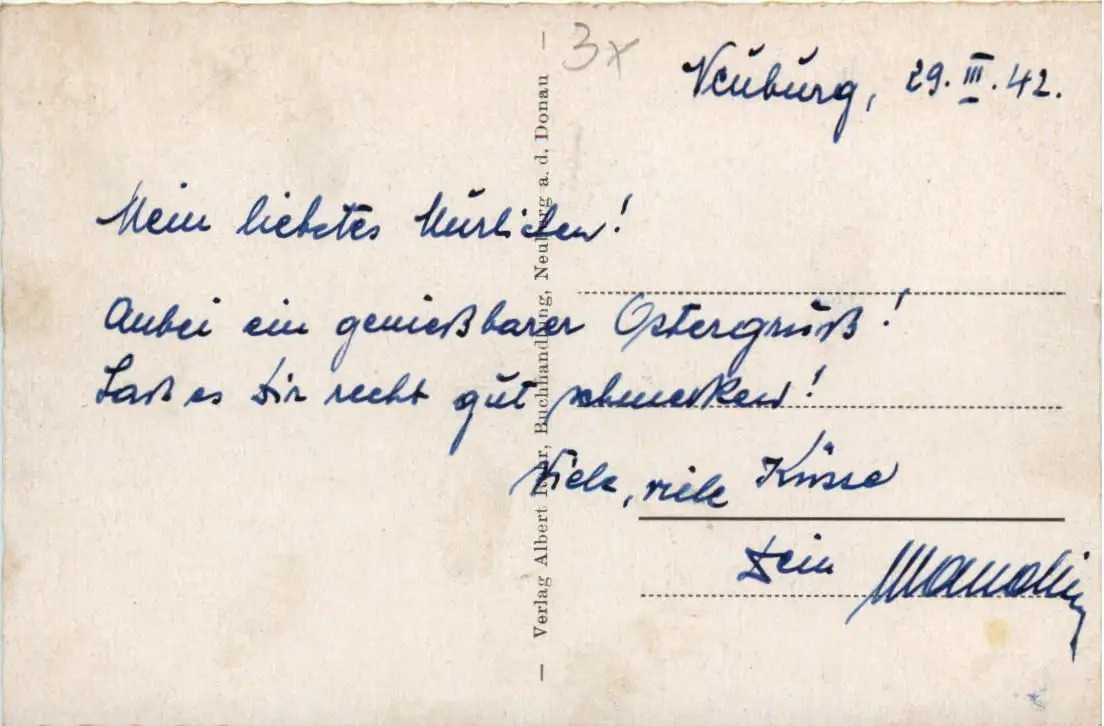 3x
Neuburg, 29. III. 42.
Mein liebstes !
Anbei ein genießbarer Ostergruß!
Laß es Dir recht gut schmecken!
Viele, viele Küsse
Dein
— Verlag Albert Buchhandlung, Neuburg a. d. Donau —